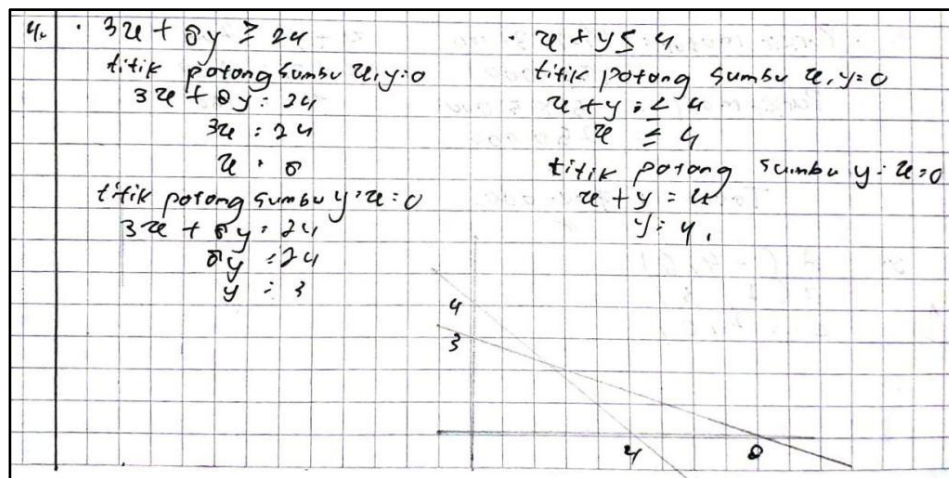 4. · 3x + 8y ≥ 24
titik potong sumbu x, y=0
3x + 8y = 24
3x = 24
x = 8
titik potong sumbu y = x = 0
3x + 8y = 24
8y = 24
y = 3
· x + y ≤ 4
titik potong sumbu x, y=0
x + y = ≤ 4
x ≤ 4
titik potong sumbu y = x = 0
x + y = 4
y = 4.
4
3
4
8